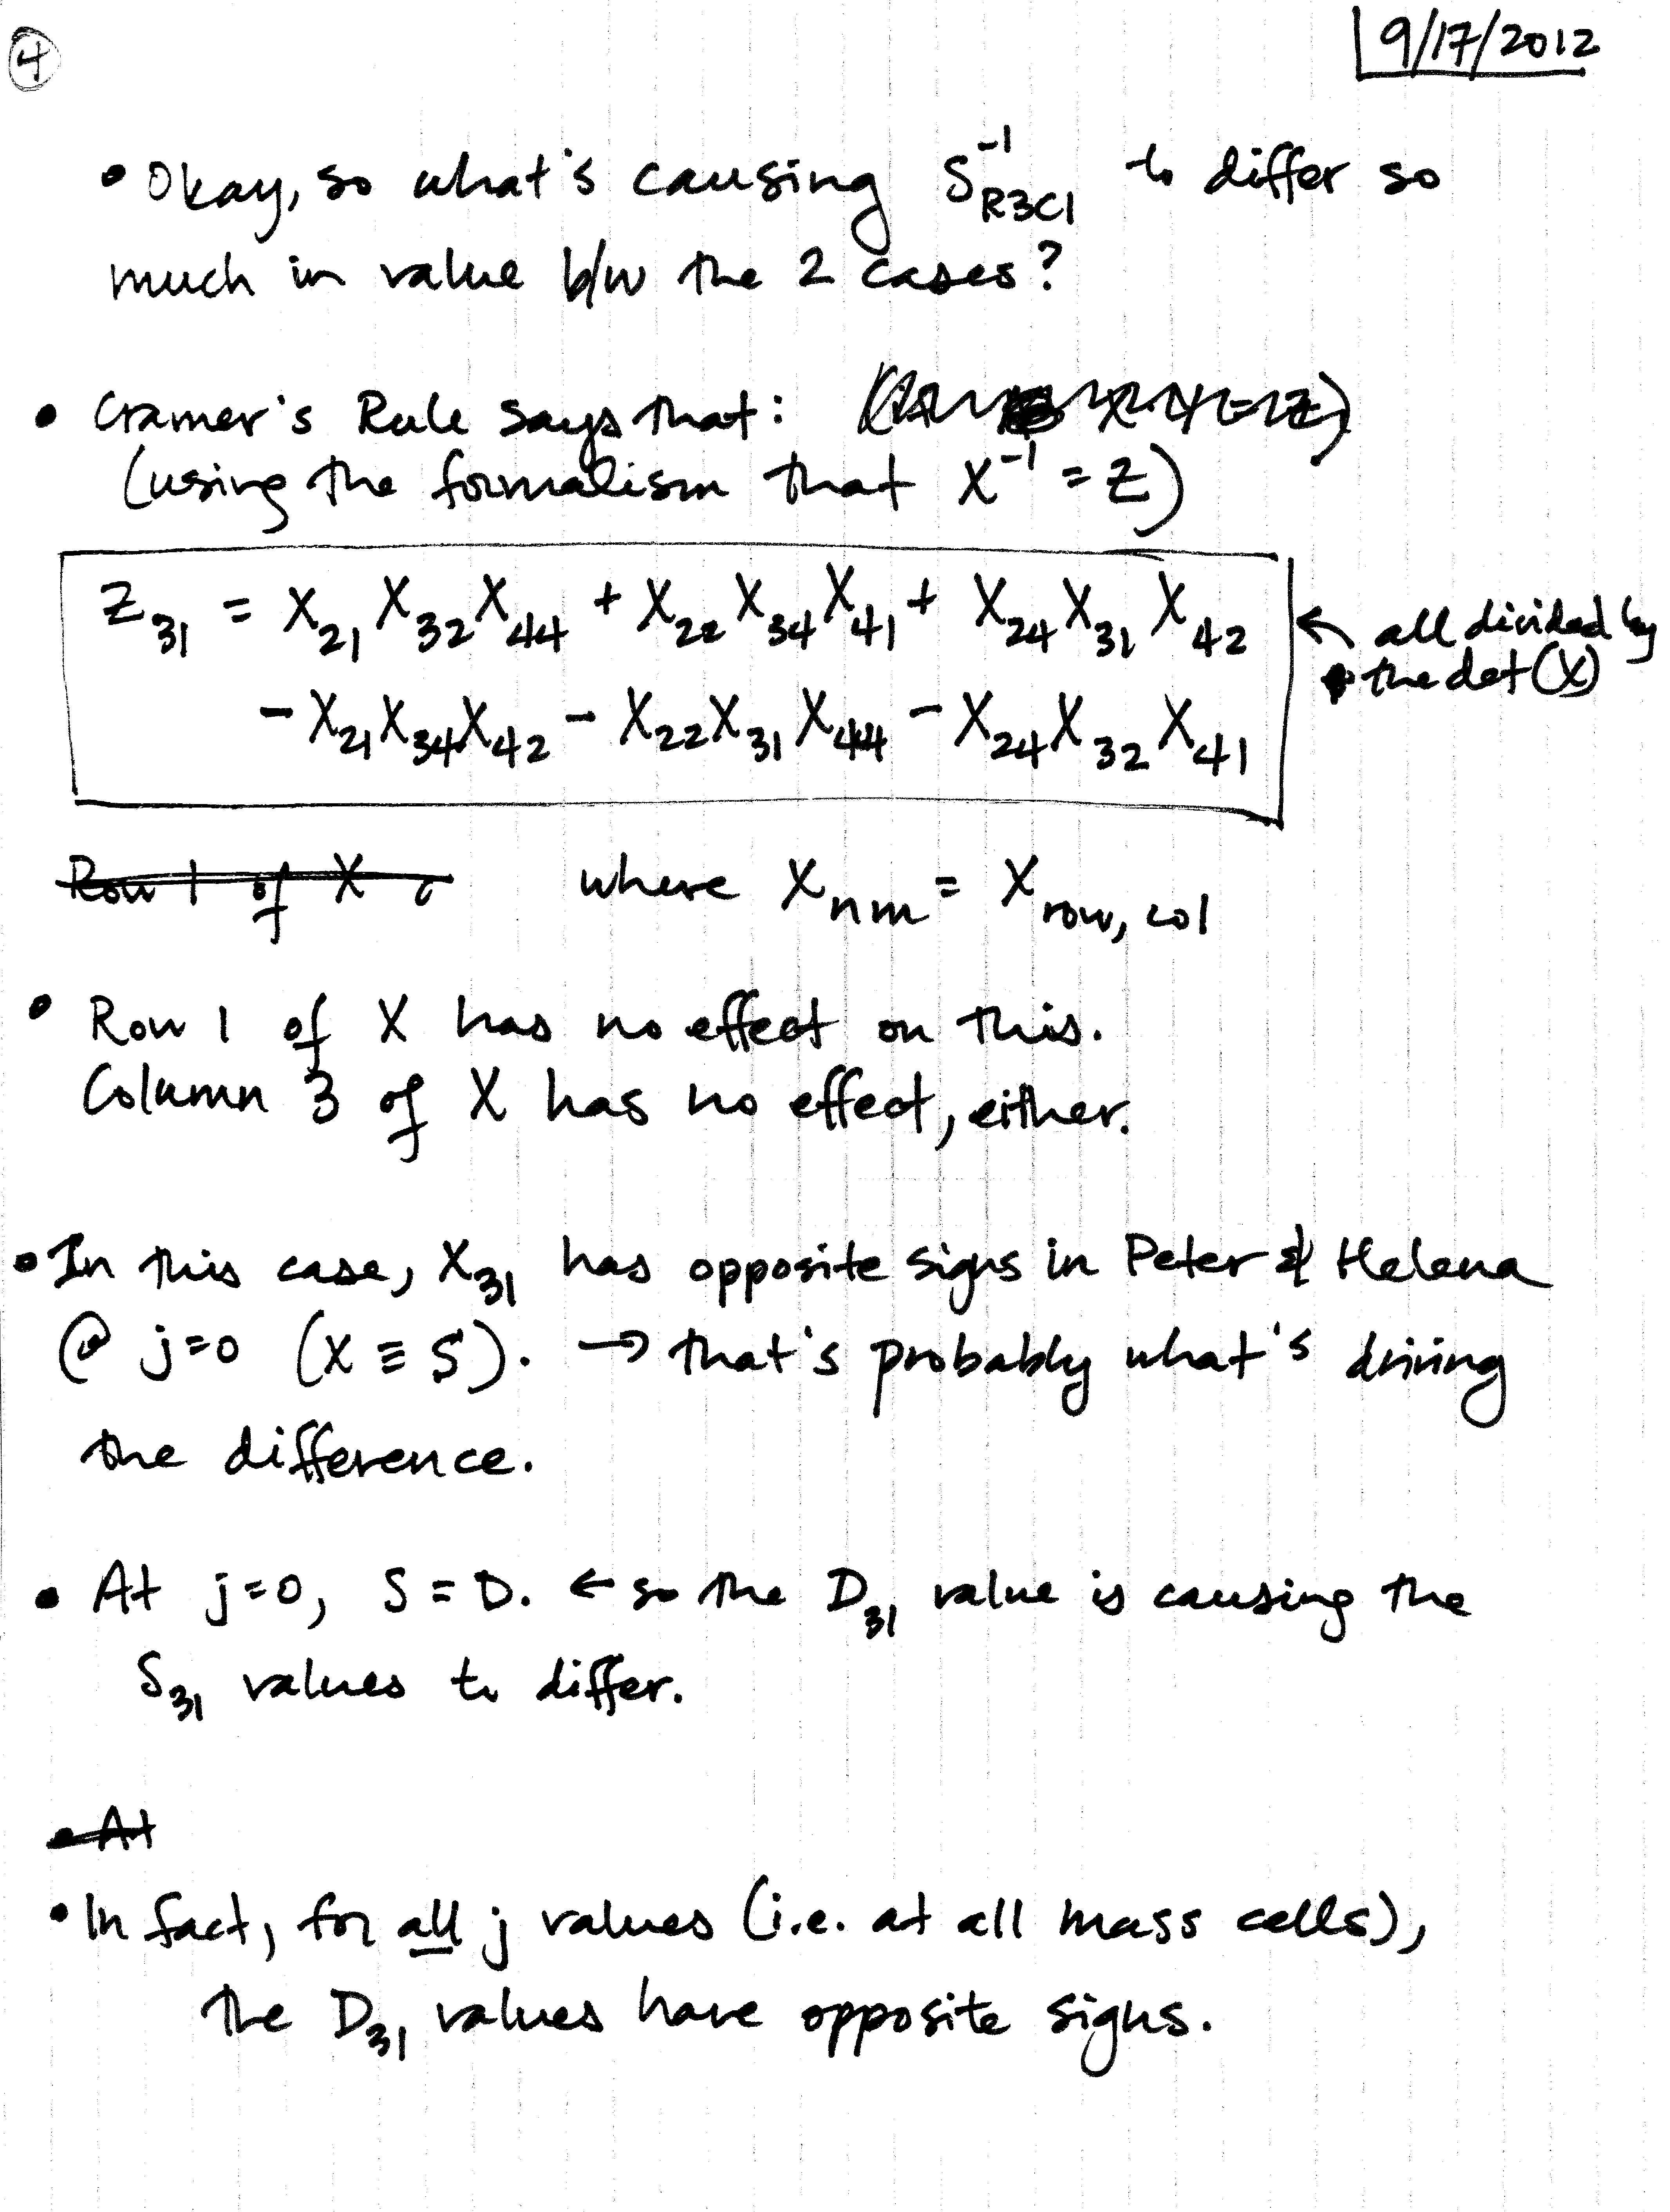 ④
9/17/2012
• Okay, so what's causing S⁻¹_R3C1 to differ so
much in value b/w the 2 cases?
• Cramer's Rule says that:
(using the formalism that X⁻¹ = Z)
Z₃₁ = X₂₁X₃₂X₄₄ + X₂₂X₃₄X₄₁ + X₂₄X₃₁X₄₂
− X₂₁X₃₄X₄₂ − X₂₂X₃₁X₄₄ − X₂₄X₃₂X₄₁
← all divided by
the det(X)
Row 1 of X
where X_nm = X_row, col
• Row 1 of X has no effect on this.
Column 3 of X has no effect, either.
• In this case, X₃₁ has opposite signs in Peter & Helena
@ j=0 (X ≡ S). → that's probably what's driving
the difference.
• At j=0, S = D. ← so the D₃₁ value is causing the
S₃₁ values to differ.
• At
• In fact, for all j values (i.e. at all mass cells),
the D₃₁ values have opposite signs.